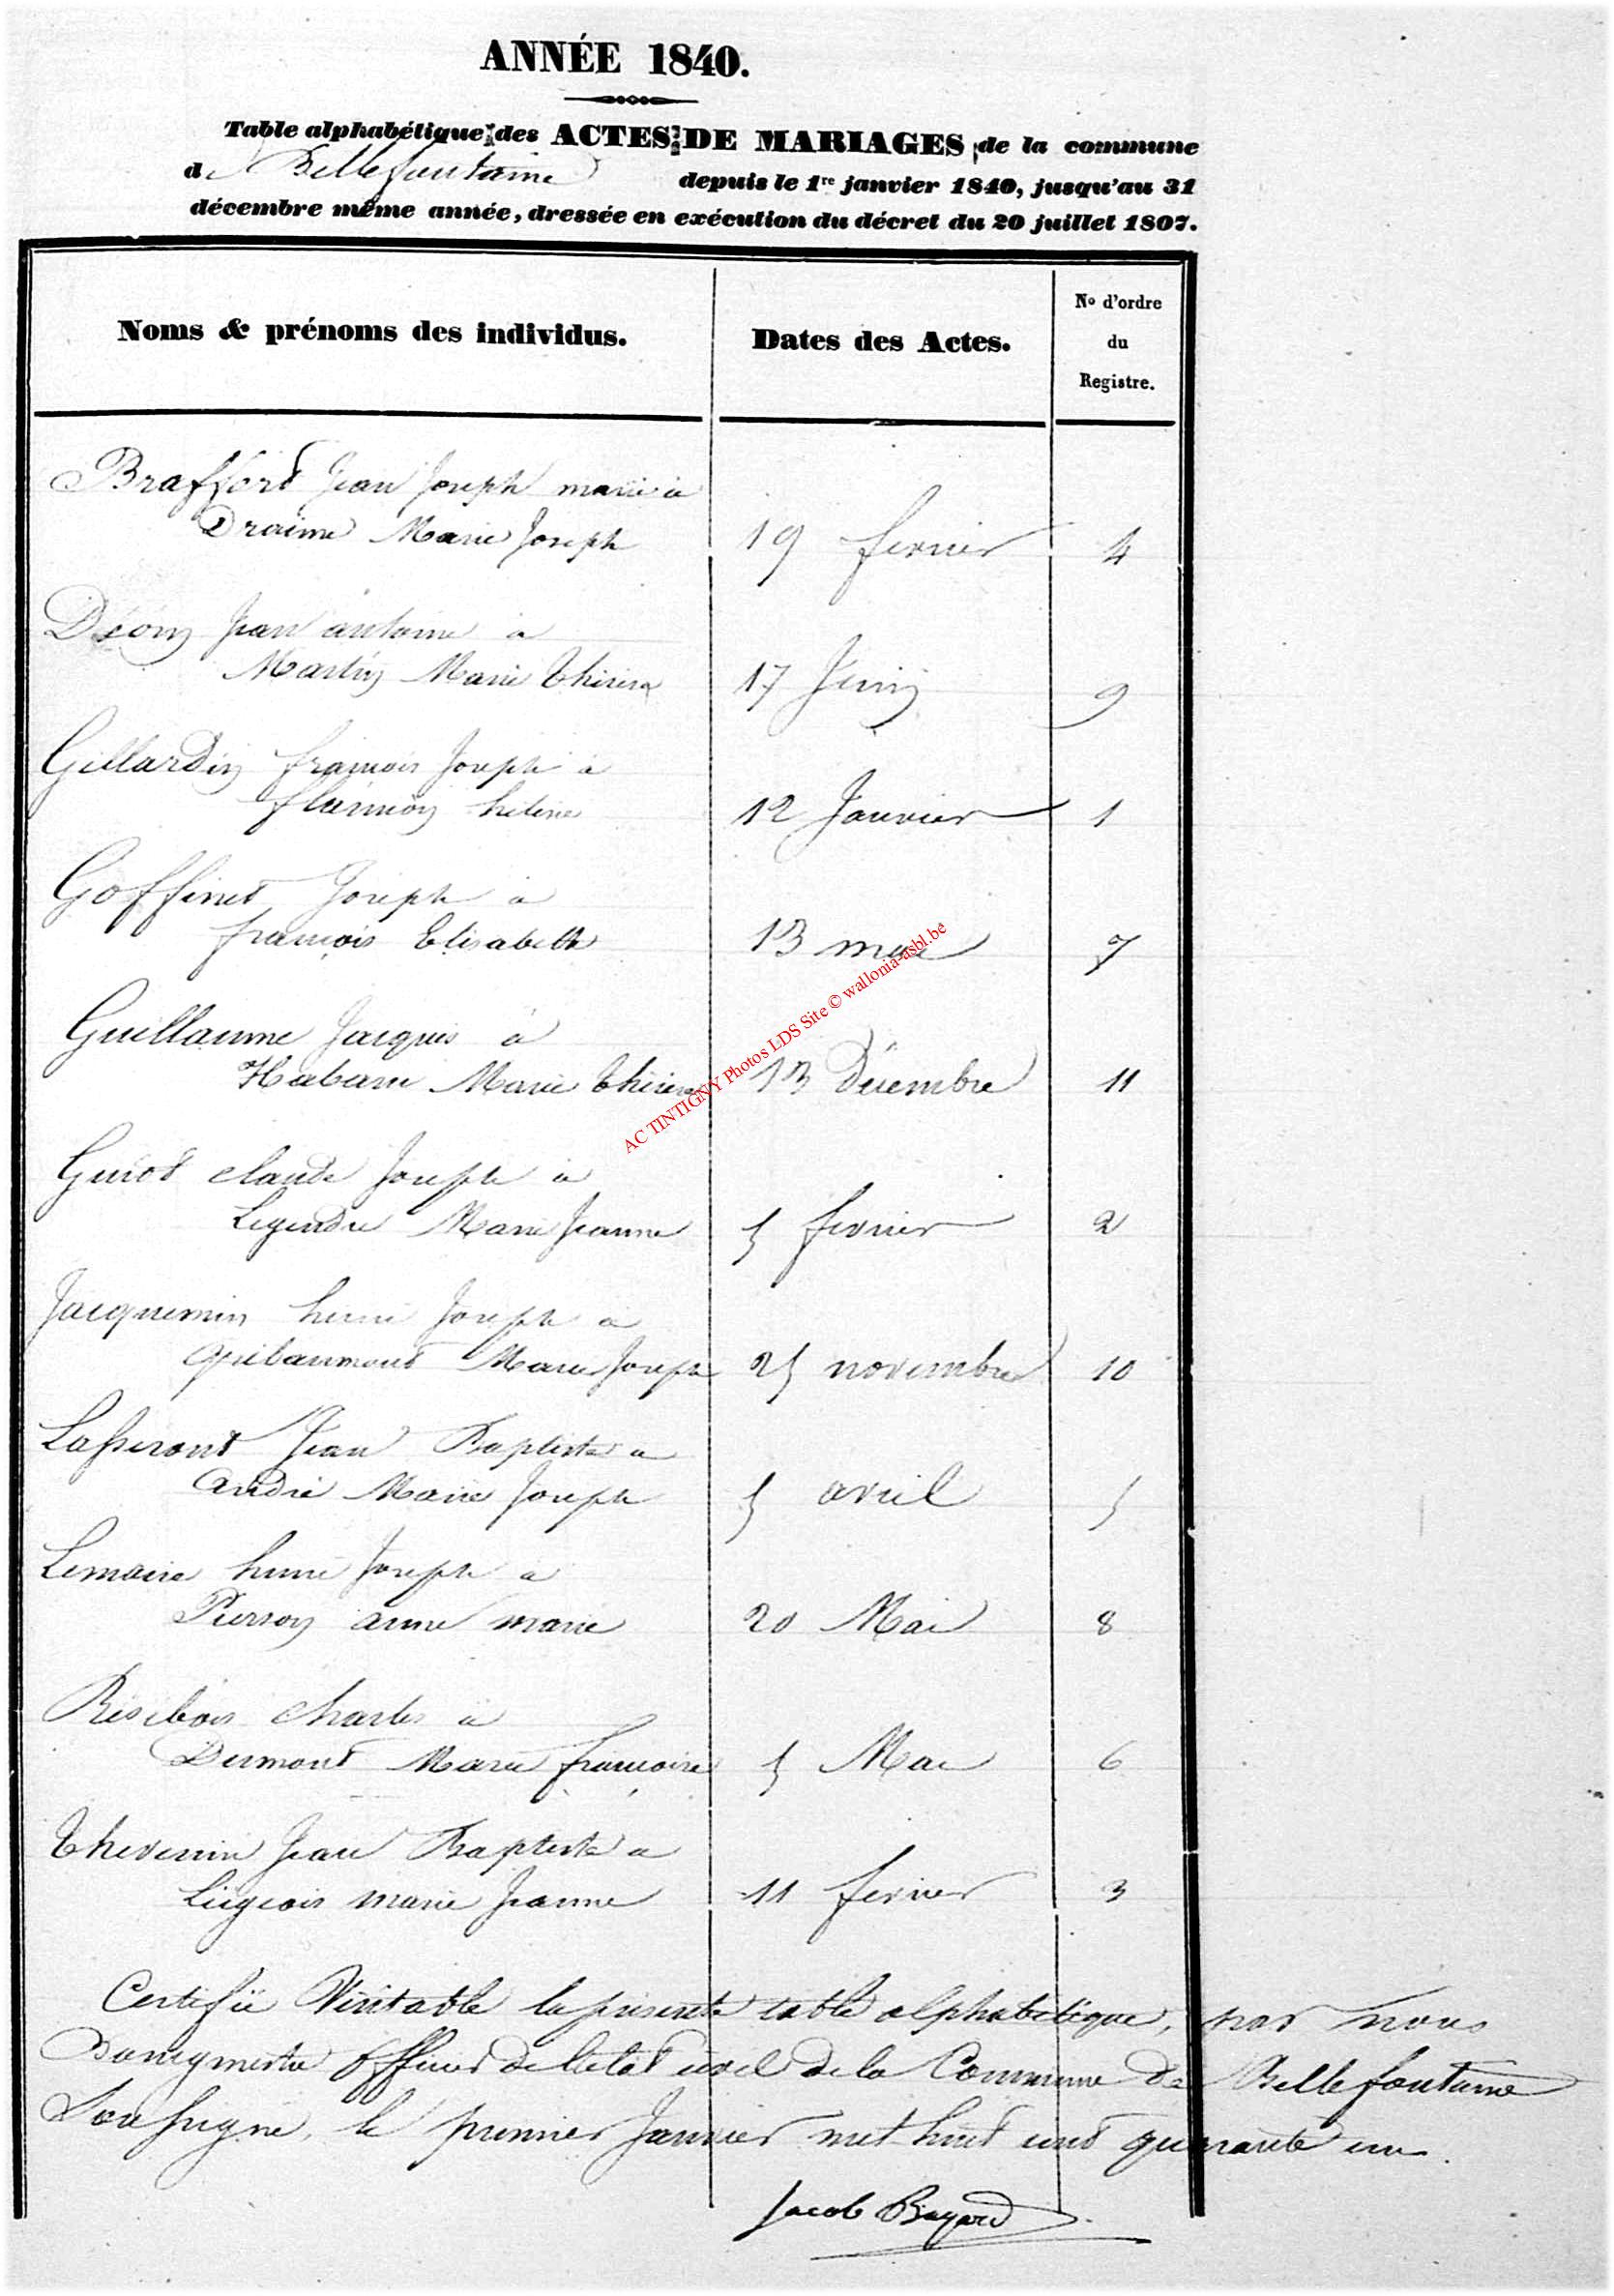 ANNÉE 1840.
Table alphabétique des ACTES DE MARIAGES de la commune
de Bellefontaine depuis le 1re janvier 1840, jusqu'au 31
décembre même année, dressée en exécution du décret du 20 juillet 1807.
Noms & prénoms des individus. Dates des Actes. No d'ordre du Registre.
Braffort Jean Joseph marié à
Draime Marie Joseph 19 fevrier 4
Déom Jean antoine a
Martin Marie thérèse 17 Juin 9
Gillardin françois Joseph à
flamion hélène 12 Janvier 1
Goffinet Joseph a
françois Elisabeth 13 mai 7
Guillaume Jacques à
Habaru Marie thérèse 13 Décembre 11
Guiot claude Joseph à
Legendre Marie Jeanne 5 fevrier 2
Jacquemin henri Joseph a
Marie Joseph 25 novembre 10
Lasseront Jean Baptiste a
andré Marie Joseph 5 avril 5
Lemaire henri Joseph a
Pierson anne marie 20 Mai 8
Résibois charles à
Dumont Marie françoise 5 Mai 6
thevenin Jean Baptiste a
Liégeois marie Jeanne 11 fevrier 3
Certifié Véritable la présente table alphabétique, par nous
Bourgmestre officier de l'état civil de la Commune de Bellefontaine
Soussigné, le premier Janvier mil huit cent quarante un.
Jacob Bayard
AC TINTIGNY Photos LDS Site © wallonia-asbl.be